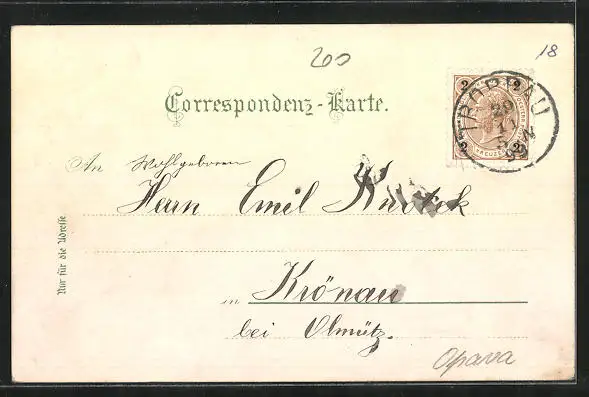 200
18
Correspondenz-Karte.
2 2
2 2
TROPPAU
20
11
An Wohlgeboren
Herrn Emil
in Krönau
bei Olmütz.
Nur für die Adresse
Opava